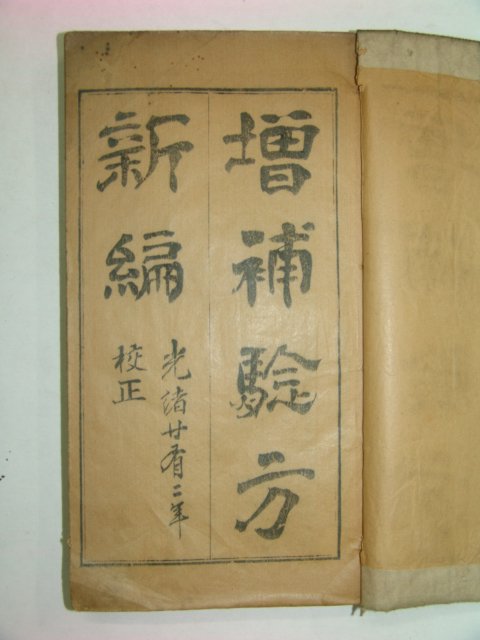 增補驗方
新編
光緒廿有二年
校正